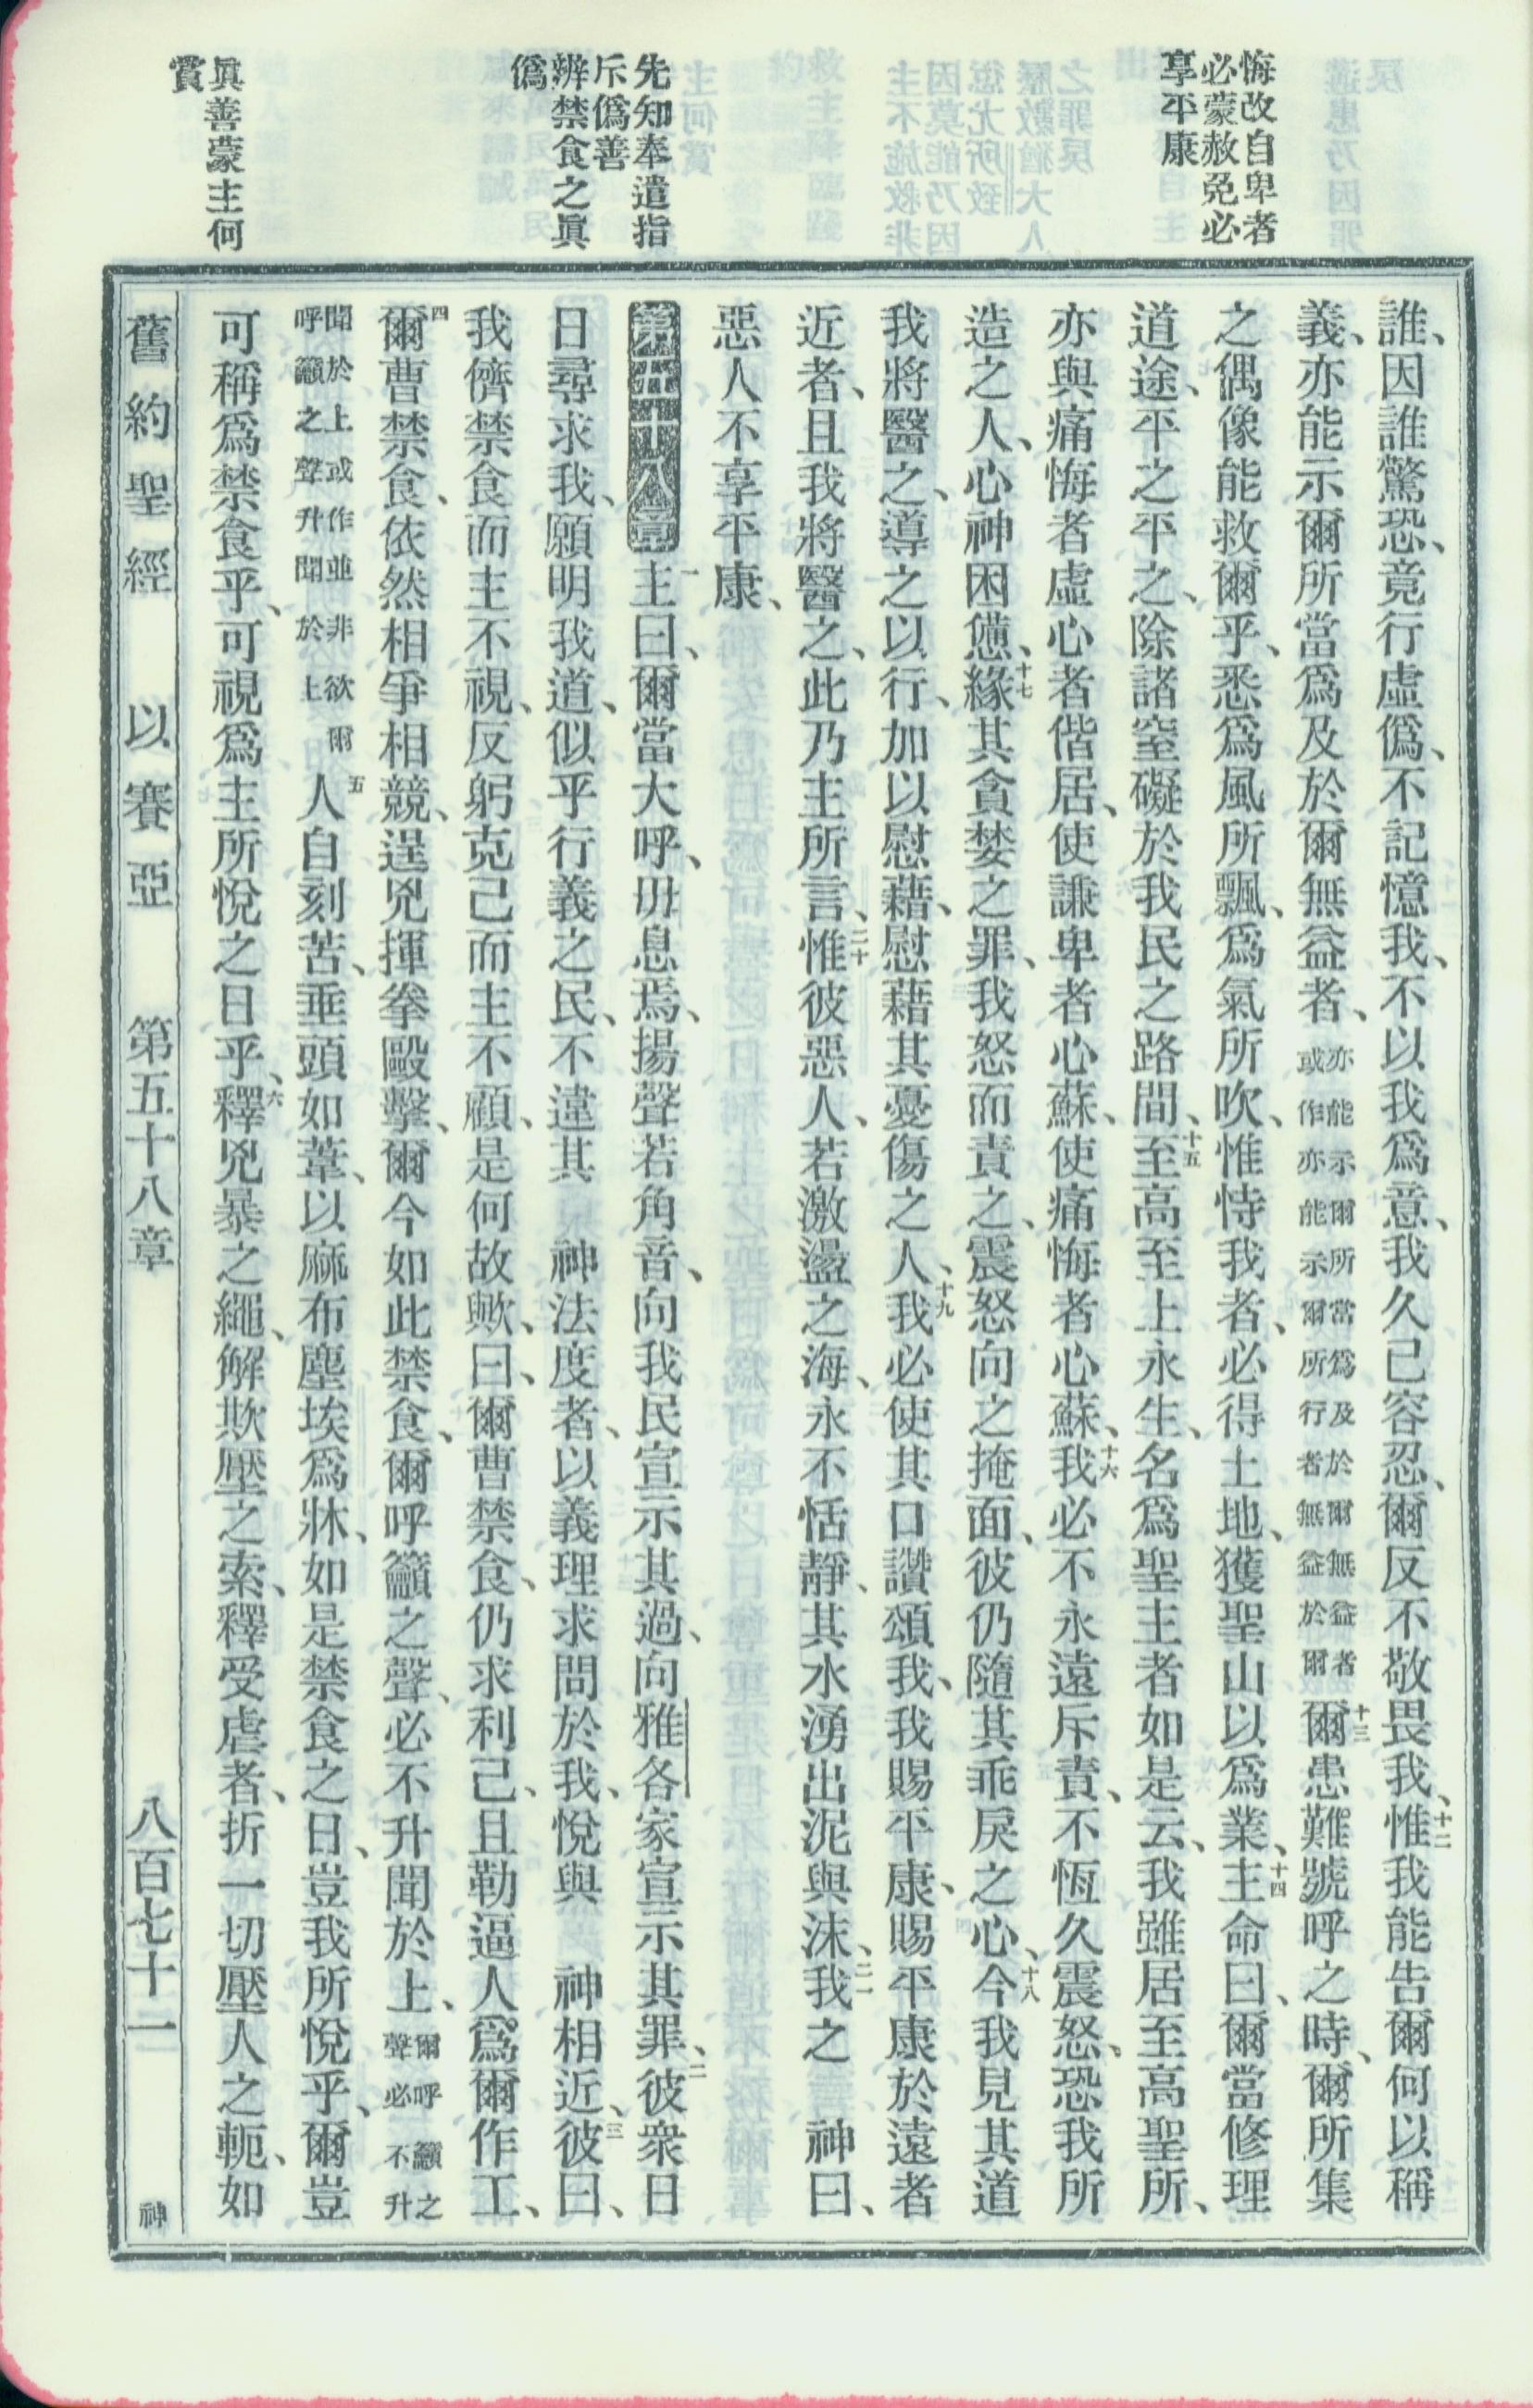 悔改自卑者
必蒙赦免必
享平康
先知奉遣指
斥僞善
辨禁食之眞
僞
眞善蒙主何
賞
誰、因誰驚恐、竟行虛僞、不記憶我、不以我爲意、我久已容忍、爾反不敬畏我、十二惟我能告爾何以稱
義、亦能示爾所當爲及於爾無益者、亦能示爾所當爲及於爾無益者或作亦能示爾所行者無益於爾十三爾患難號呼之時、爾所集
之偶像能救爾乎、悉爲風所飄、爲氣所吹、惟恃我者、必得土地、獲聖山以爲業、十四主命曰、爾當修理
道途、平之平之、除諸窒礙於我民之路間、十五至高至上永生、名爲聖主者如是云、我雖居至高聖所、
亦與痛悔者虛心者偕居、使謙卑者心蘇、使痛悔者心蘇、十六我必不永遠斥責、不恆久震怒、恐我所
造之人、心神困憊、十七緣其貪婪之罪、我怒而責之、震怒向之掩面、彼仍隨其乖戾之心、十八今我見其道
我將醫之、導之以行、加以慰藉、慰藉其憂傷之人、十九我必使其口讚頌我、我賜平康、賜平康於遠者
近者、且我將醫之、此乃主所言、二十惟彼惡人、若激盪之海、永不恬靜、其水湧出泥與沫、二一我之 神曰、
惡人不享平康、
第五十八章一主曰、爾當大呼、毋息焉、揚聲若角音、向我民宣示其過、向雅各家宣示其罪、二彼衆日
日尋求我、願明我道、似乎行義之民、不違其 神法度者、以義理求問於我、悅與 神相近、三彼曰、
我儕禁食而主不視、反躬克己而主不顧、是何故歟、曰、爾曹禁食、仍求利己、且勒逼人爲爾作工、
四爾曹禁食、依然相爭相競、逞兇揮拳毆擊、爾今如此禁食、爾呼籲之聲、必不升聞於上、爾呼籲之聲必不升
聞於上或作並非欲爾呼籲之聲升聞於上五人自刻苦、垂頭如葦、以麻布塵埃爲牀、如是禁食之日、豈我所悅乎、爾豈
可稱爲禁食乎、可視爲主所悅之日乎、六釋兇暴之繩、解欺壓之索、釋受虐者、折一切壓人之軛、如
舊約聖經 以賽亞 第五十八章 八百七十一 神